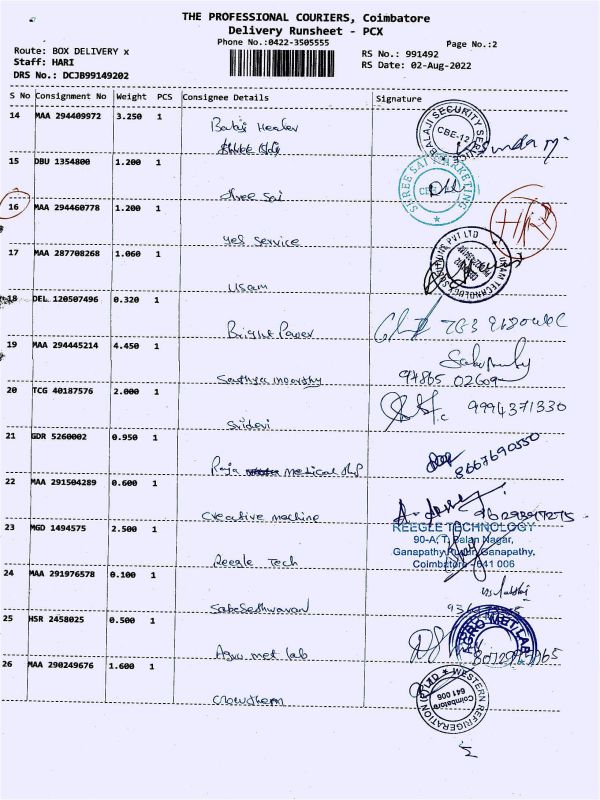 THE PROFESSIONAL COURIERS, Coimbatore
Delivery Runsheet - PCX
Phone No.:0422-3505555
Page No.:2
Route: BOX DELIVERY x
Staff: HARI
DRS No.: DCJB99149202
RS No.: 991492
RS Date: 02-Aug-2022
S No Consignment No Weight PCS Consignee Details Signature
14 MAA 294409972 3.250 1
BALAJI SECURITY SERVICE
CBE-12
15 DBU 1354800 1.200 1
Shree Sai
SHREE SAI MARKETING
16 MAA 294460778 1.200 1
Yes Service
17 MAA 287708268 1.060 1
Usam
18 DEL 120507496 0.320 1
Bright Power
19 MAA 294445214 4.450 1
Sathya moorthy
20 TCG 40187576 2.000 1
Sridevi
9994371330
21 GDR 5260002 0.950 1
Raja medical shp
8667690550
22 MAA 291504289 0.600 1
Creative machine
23 MGD 1494575 2.500 1
Reegle Tech
REEGLE TECHNOLOGY
90-A, T. Balan Nagar,
Ganapathy Pudur, Ganapathy,
Coimbatore - 641 006
24 MAA 291976578 0.100 1
25 HSR 2458025 0.500 1
Agro met lab
AGRO MET LAB
26 MAA 290249676 1.600 1
WESTERN REFRIGERATION (P) LTD
Coimbatore
641 006